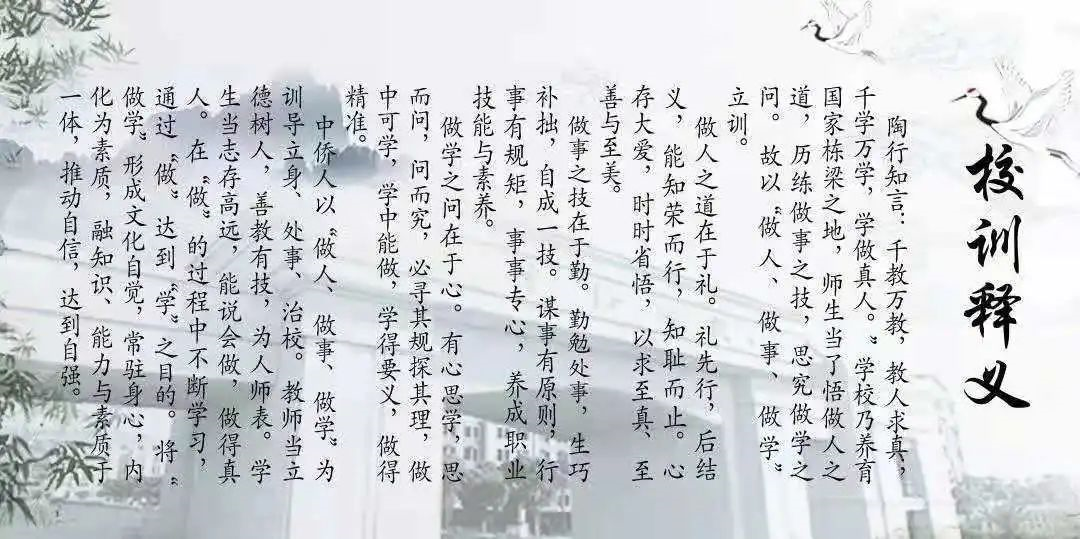 校训释义
陶行知言：千教万教，教人求真，
千学万学，学做真人。”学校乃养育
国家栋梁之地，师生当了悟做人之
道，历练做事之技，思究做学之
问。故以“做人、做事、做学”
立训。
做人之道在于礼。礼先行，后结
义，能知荣而行，知耻而止。心
存大爱，时时省悟，以求至真、至
善与至美。
做事之技在于勤。勤勉处事，生巧
补拙，自成一技。谋事有原则，行
事有规矩，事事专心，养成职业
技能与素养。
做学之问在于心。有心思学，思
而问，问而究，必寻其规探其理，做
中可学，学中能做，学得要义，做得
精准。
中侨人以“做人、做事、做学”为
训导立身、处事、治校。教师当立
德树人，善教有技，为人师表。学
生当志存高远，能说会做，做得真
人。在“做”的过程中不断学习，
通过“做”达到“学”之目的。将“
做学”形成文化自觉，常驻身心，内
化为素质，融知识、能力与素质于
一体，推动自信，达到自强。